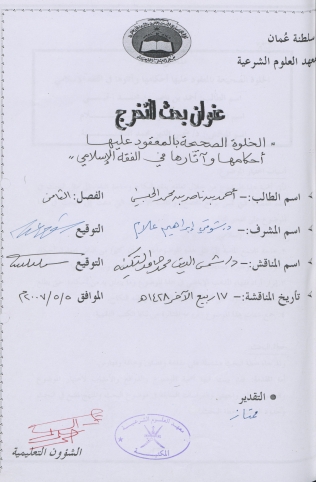 سلطنة عُمان
معهد العلوم الشرعية
عنوان بحث التخرج
" الخلوة الصحيحة بالمعقود عليها
أحكامها وآثارها في الفقه الإسلامي "
اسم الطالب:- أحمد بن ناصر بن محمد الفصل: الثامن
اسم المشرف:- د. شوقي إبراهيم علام التوقيع
اسم المناقش:- د/ شمس الدين محمد حامد التكينة التوقيع
تأريخ المناقشة:- ١٧ ربيع الآخر ١٤٢٨هـ الموافق ٢٠٠٧/٥/٥م
التقدير
ممتاز
معهد العلوم الشرعية
المكتبة
الشؤون التعليمية